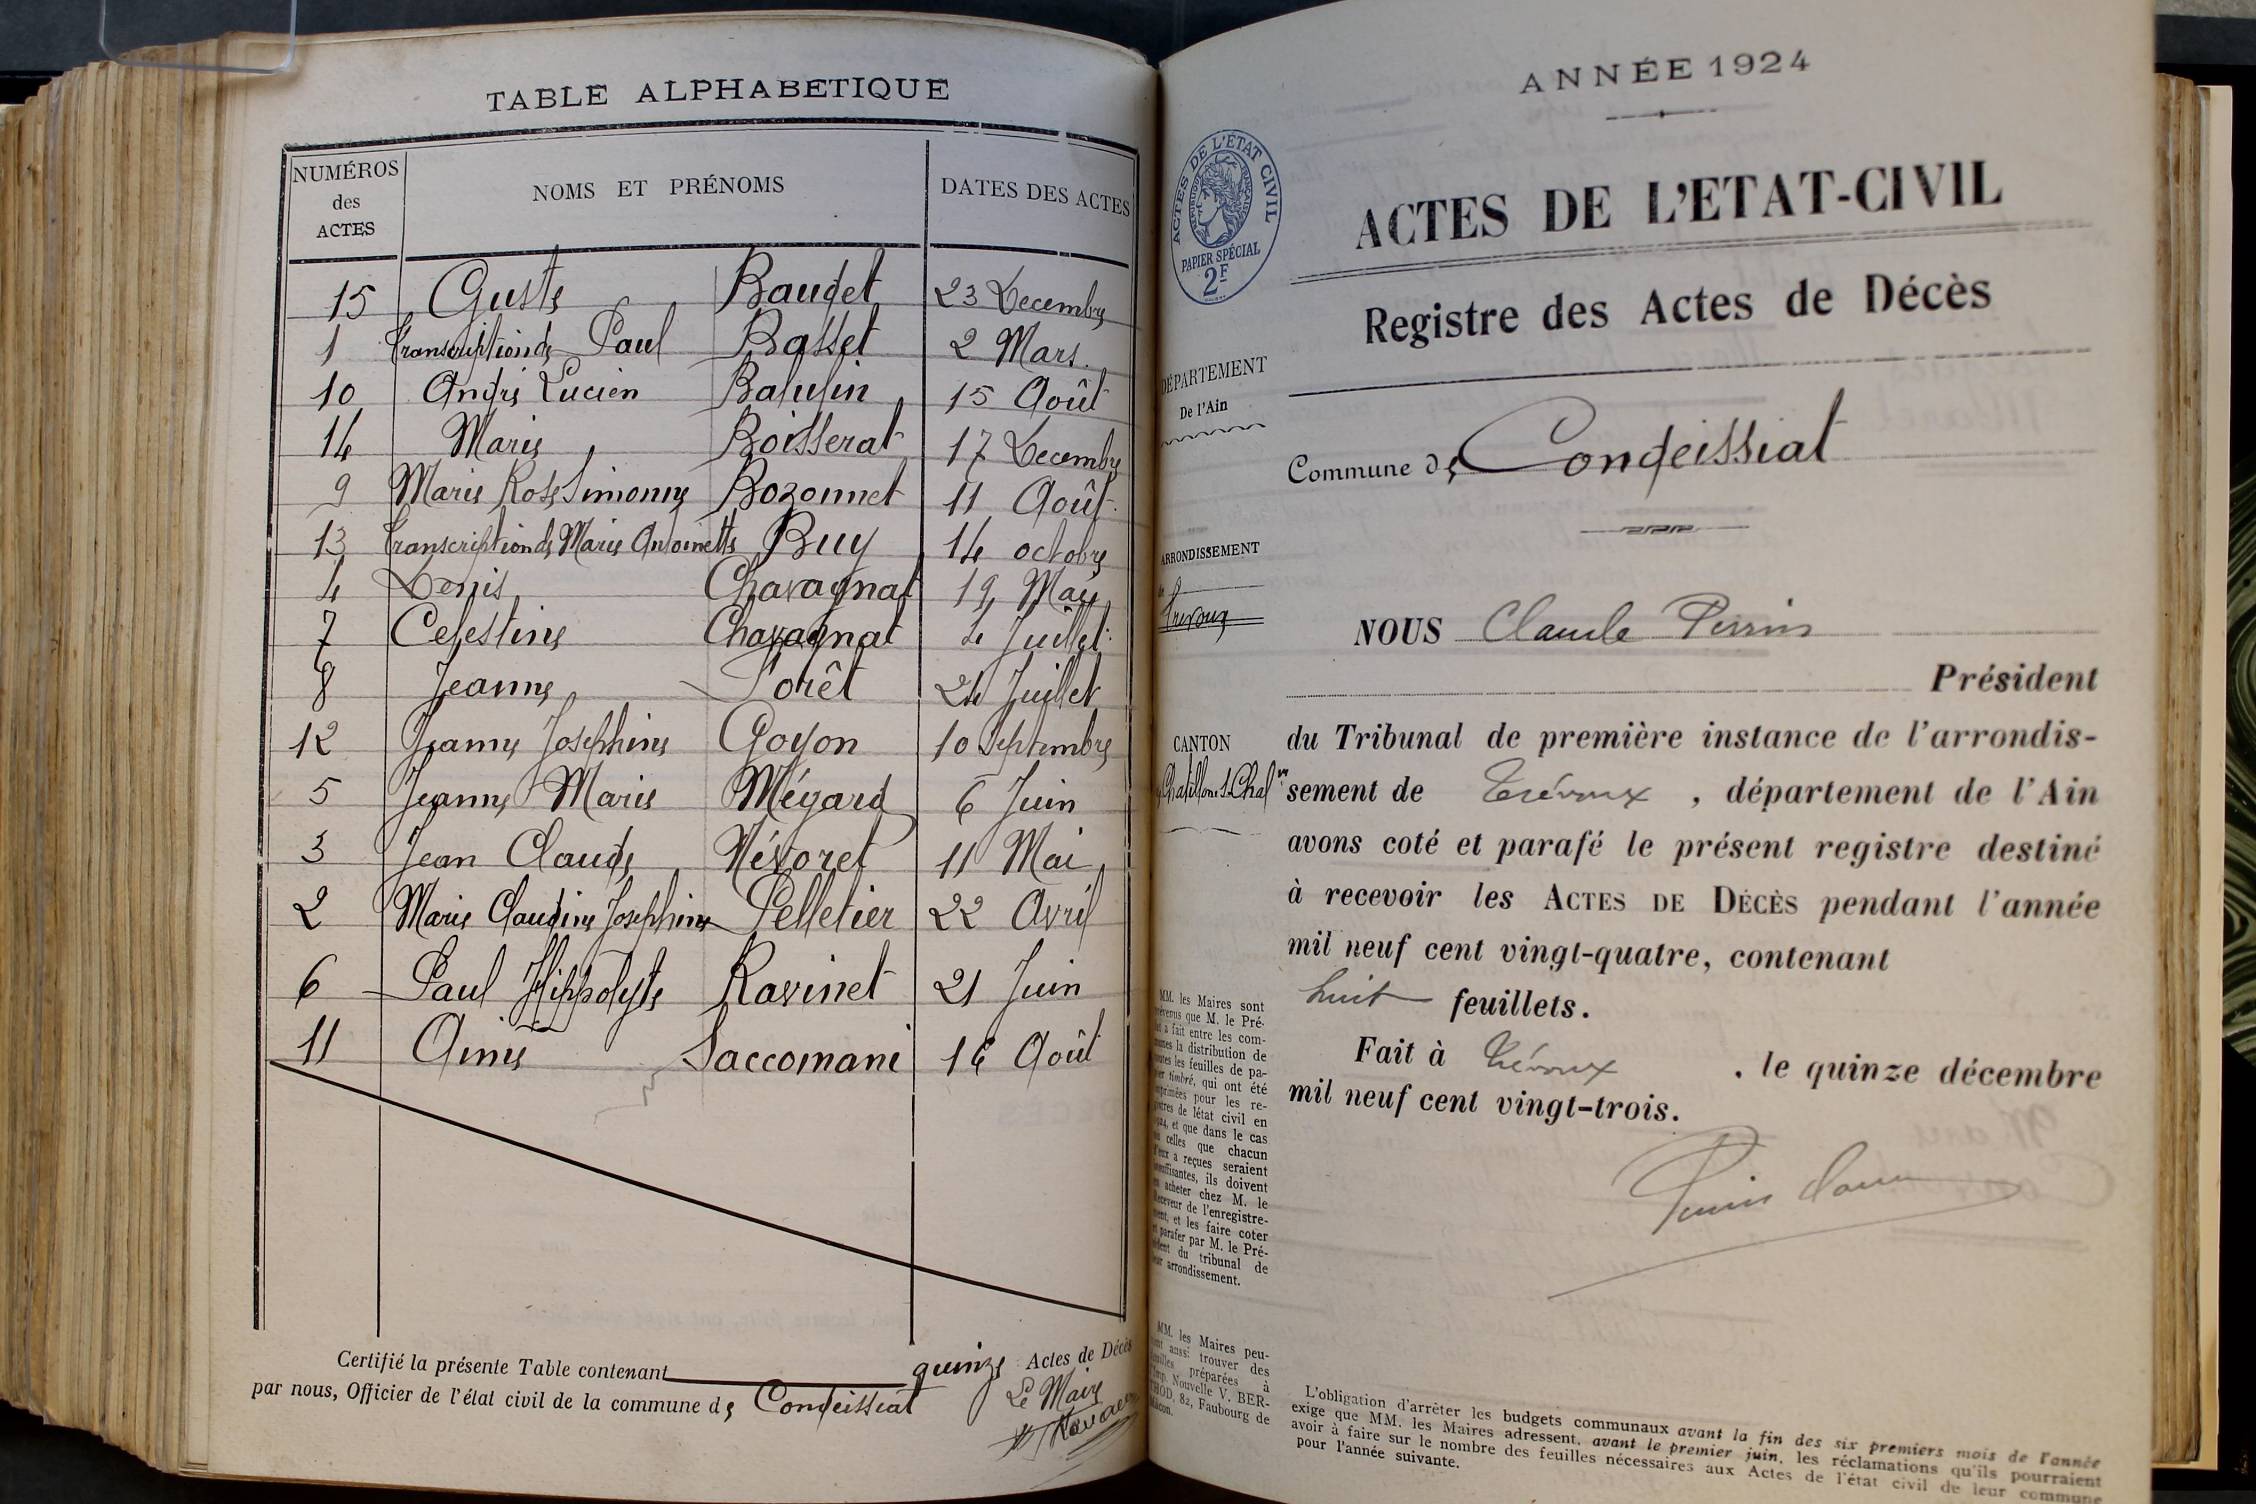 TABLE ALPHABETIQUE
NUMÉROS
des
ACTES
NOMS ET PRÉNOMS
DATES DES ACTES
15 Guste Baudet 23 Decembre
1 Transcription de Paul Basset 2 Mars.
10 André Lucien Balufin 15 Août
14 Marie Boisserat 17 Decembre
9 Marie Rose Simonne Bozonnet 11 Août
13 Transcription de Marie Antoinette Buy 14 octobre
4 Denis Chavagnat 19 Mai
7 Celestine Chavagnat 4 Juillet
8 Jeanne Forêt 24 Juillet
12 Jeanne Josephine Goyon 10 Septembre
5 Jeanne Marie Mégard 6 Juin
3 Jean Claude Névoret 11 Mai
2 Marie Claudine Josephine Pelletier 22 Avril
6 Paul Hippolyte Ravinet 21 Juin
11 Aimé Saccomani 16 Août
Certifié la présente Table contenant quinze Actes de Décès
par nous, Officier de l'état civil de la commune de Condeissiat
Le Maire
ANNÉE 1924
ACTES DE L'ÉTAT CIVIL
PAPIER SPÉCIAL
2F
ACTES DE L'ETAT-CIVIL
Registre des Actes de Décès
DÉPARTEMENT
De l'Ain
Commune de Condeissiat
ARRONDISSEMENT
Trévoux
NOUS Claude Perrin
Président
du Tribunal de première instance de l'arrondis-
CANTON
Chatillon s Chal
sement de Trévoux, département de l'Ain
avons coté et parafé le présent registre destiné
à recevoir les ACTES DE DÉCÈS pendant l'année
mil neuf cent vingt-quatre, contenant
huit feuillets.
Fait à Trévoux, le quinze décembre
mil neuf cent vingt-trois.
MM. les Maires sont
prévenus que M. le Pré-
fet a fait entre les com-
munes la distribution de
toutes les feuilles de pa-
pier timbré, qui ont été
imprimées pour les re-
gistres de l'état civil en
1924, et que dans le cas
où celles que chacun
d'eux a reçues seraient
insuffisantes, ils doivent
en acheter chez M. le
Receveur de l'enregistre-
ment, et les faire coter
et parafer par M. le Pré-
sident du tribunal de
leur arrondissement.
MM. les Maires peu-
vent aussi trouver des
feuilles préparées à
l'Imp. Nouvelle V. BER-
THOD, 82, Faubourg de
Mâcon.
L'obligation d'arrêter les budgets communaux avant la fin des six premiers mois de l'année
exige que MM. les Maires adressent, avant le premier juin, les réclamations qu'ils pourraient
avoir à faire sur le nombre des feuilles nécessaires aux Actes de l'état civil de leur commune
pour l'année suivante.